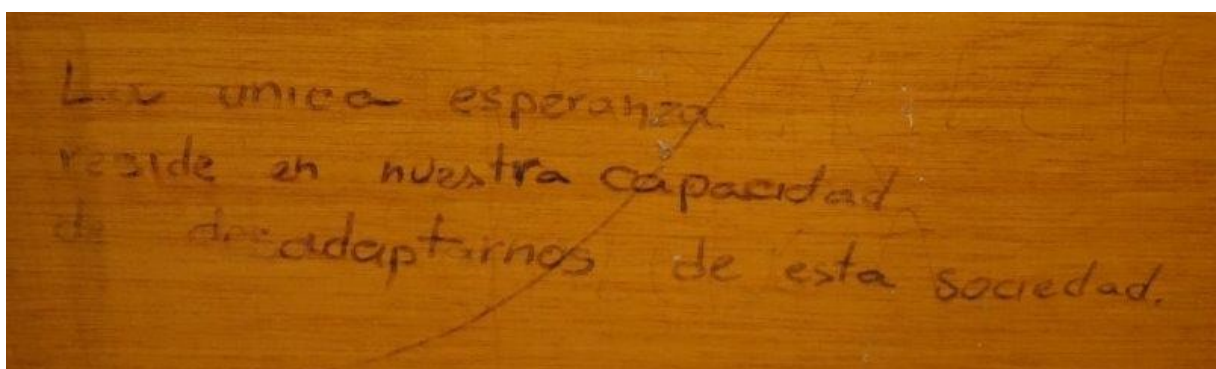 La unica esperanza
reside en nuestra capacidad
de desadaptarnos de esta sociedad.